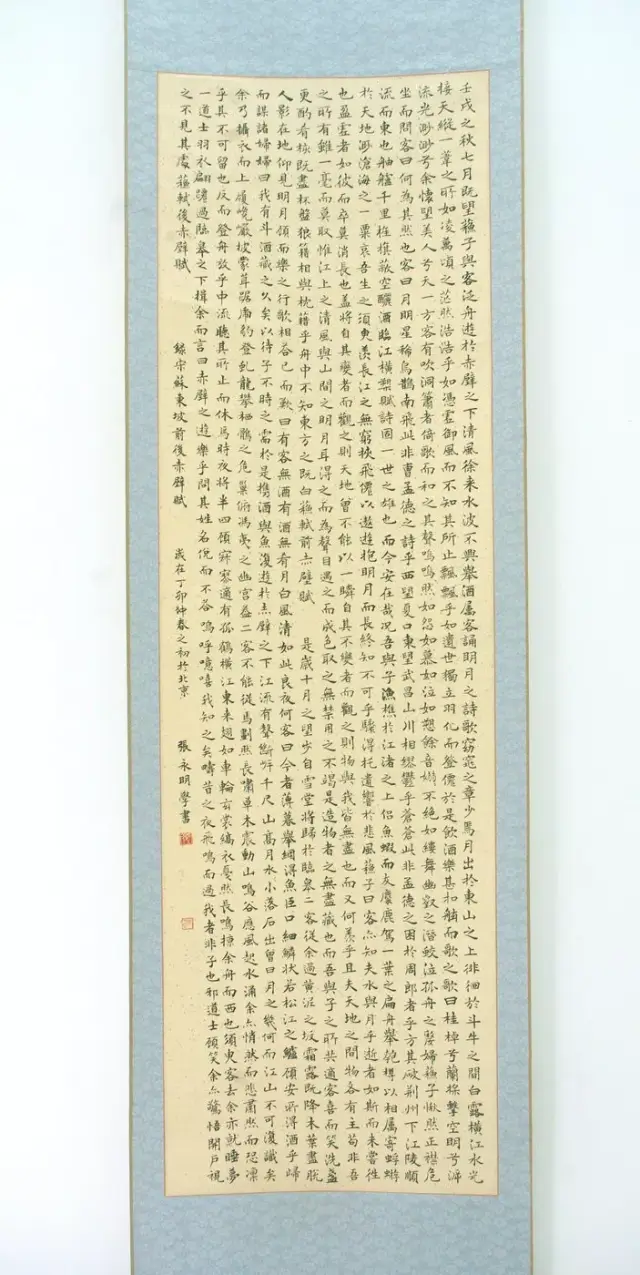 壬戌之秋七月既望蘇子與客泛舟遊於赤壁之下清風徐來水波不興舉酒屬客誦明月之詩歌窈窕之章少焉月出於東山之上徘徊於斗牛之間白露橫江水光
接天縱一葦之所如凌萬頃之茫然浩浩乎如憑虛御風而不知其所止飄飄乎如遺世獨立羽化而登僊於是飲酒樂甚扣舷而歌之歌曰桂棹兮蘭槳擊空明兮泝
流光渺渺兮余懷望美人兮天一方客有吹洞簫者倚歌而和之其聲嗚嗚然如怨如慕如泣如愬餘音嫋嫋不絕如縷舞幽壑之潛蛟泣孤舟之嫠婦蘇子愀然正襟危
坐而問客曰何為其然也客曰月明星稀烏鵲南飛此非曹孟德之詩乎西望夏口東望武昌山川相繆鬱乎蒼蒼此非孟德之困於周郎者乎方其破荊州下江陵順
流而東也舳艫千里旌旗蔽空釃酒臨江橫槊賦詩固一世之雄也而今安在哉況吾與子漁樵於江渚之上侶魚蝦而友麋鹿駕一葉之扁舟舉匏樽以相屬寄蜉蝣
於天地渺滄海之一粟哀吾生之須臾羨長江之無窮挾飛僊以遨遊抱明月而長終知不可乎驟得托遺響於悲風蘇子曰客亦知夫水與月乎逝者如斯而未嘗往
也盈虛者如彼而卒莫消長也蓋將自其變者而觀之則天地曾不能以一瞬自其不變者而觀之則物與我皆無盡也而又何羨乎且夫天地之間物各有主苟非吾
之所有雖一毫而莫取惟江上之清風與山間之明月耳得之而為聲目遇之而成色取之無禁用之不竭是造物者之無盡藏也而吾與子之所共適客喜而笑洗盞
更酌肴核既盡杯盤狼籍相與枕藉乎舟中不知東方之既白蘇軾前赤壁賦 是歲十月之望步自雪堂將歸於臨皋二客從余過黃泥之坂霜露既降木葉盡脫
人影在地仰見明月顧而樂之行歌相荅已而歎曰有客無酒有酒無肴月白風清如此良夜何客曰今者薄暮舉網得魚巨口細鱗狀若松江之鱸顧安所得酒乎歸
而謀諸婦婦曰我有斗酒藏之久矣以待子不時之需於是攜酒與魚復遊於赤壁之下江流有聲斷岸千尺山高月小水落石出曾日月之幾何而江山不可復識矣
余乃攝衣而上履巉巖披蒙茸踞虎豹登虬龍攀栖鶻之危巢俯馮夷之幽宮蓋二客不能從焉劃然長嘯草木震動山鳴谷應風起水涌余亦悄然而悲肅然而恐凜
乎其不可留也反而登舟放乎中流聽其所止而休焉時夜將半四顧寂寥適有孤鶴橫江東來翅如車輪玄裳縞衣戛然長鳴掠余舟而西也須臾客去余亦就睡夢
一道士羽衣翩躚過臨皋之下揖余而言曰赤壁之遊樂乎問其姓名俛而不答嗚呼噫嘻我知之矣疇昔之夜飛鳴而過我者非子也邪道士顧笑余亦驚悟開戶視
之不見其處蘇軾後赤壁賦 錄宋蘇東坡前後赤壁賦 歲在丁卯仲春之初於北京 張永明學書